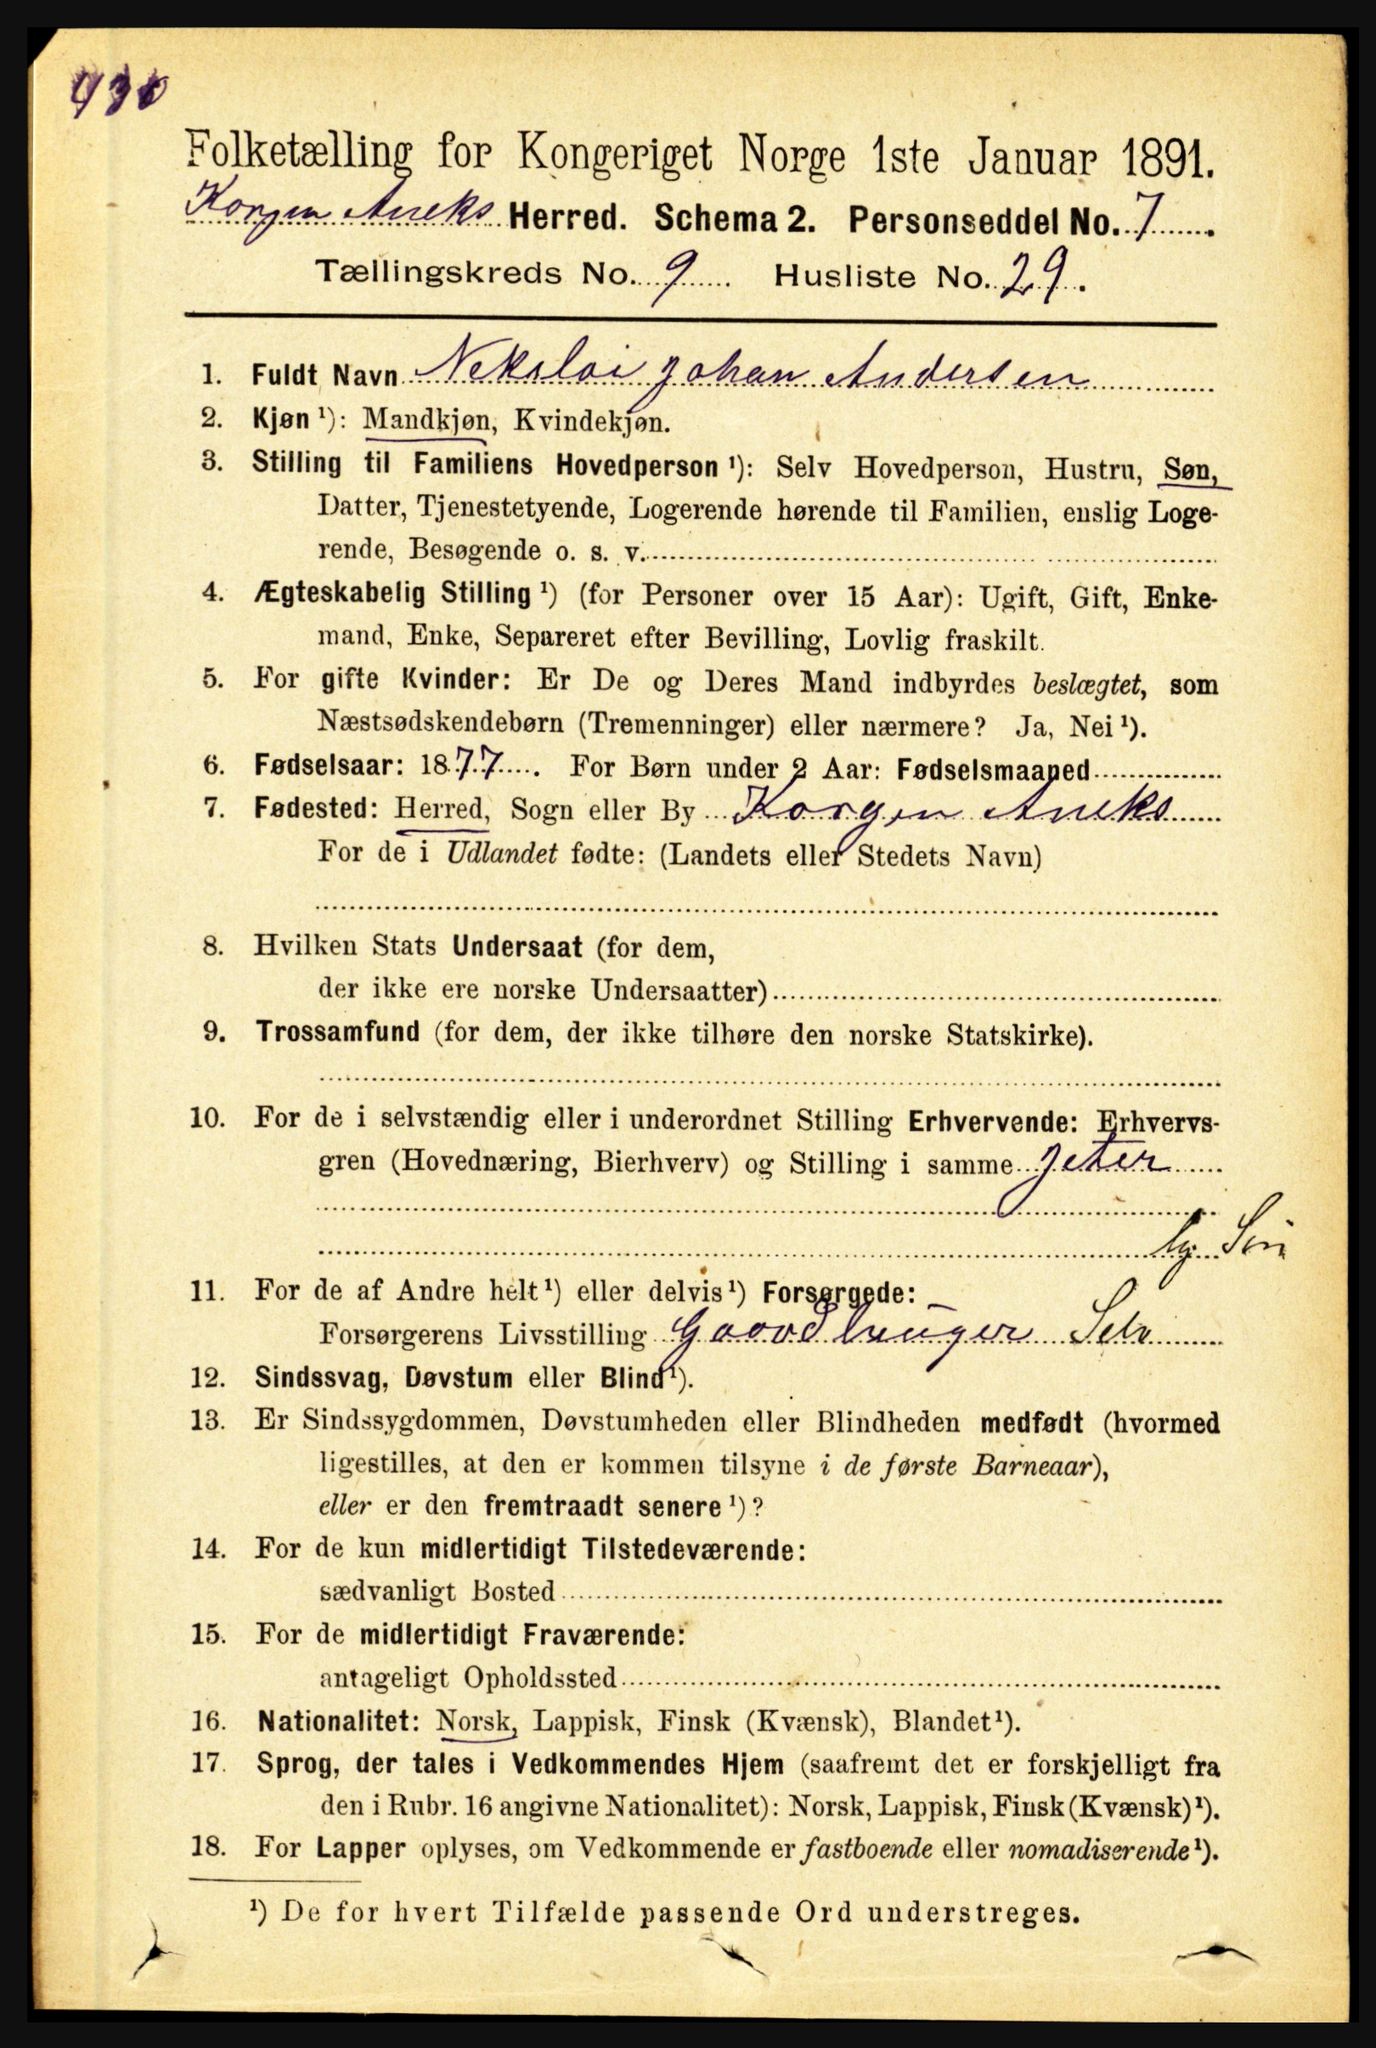 930
Folketælling for Kongeriget Norge 1ste Januar 1891.
Korgen Aneks Herred. Schema 2. Personseddel No. 7
Tællingskreds No. 9 Husliste No. 29.
1. Fuldt Navn Nekolai Johan Andersen
2. Kjøn ¹): Mandkjøn, Kvindekjøn.
3. Stilling til Familiens Hovedperson ¹): Selv Hovedperson, Hustru, Søn,
Datter, Tjenestetyende, Logerende hørende til Familien, enslig Loge-
rende, Besøgende o. s. v.
4. Ægteskabelig Stilling ¹) (for Personer over 15 Aar): Ugift, Gift, Enke-
mand, Enke, Separeret efter Bevilling, Lovlig fraskilt.
5. For gifte Kvinder: Er De og Deres Mand indbyrdes beslægtet, som
Næstsødskendebørn (Tremenninger) eller nærmere? Ja, Nei ¹).
6. Fødselsaar: 1877. For Børn under 2 Aar: Fødselsmaaned
7. Fødested: Herred, Sogn eller By Korgen Aneks
For de i Udlandet fødte: (Landets eller Stedets Navn)
8. Hvilken Stats Undersaat (for dem,
der ikke ere norske Undersaatter)
9. Trossamfund (for dem, der ikke tilhøre den norske Statskirke).
10. For de i selvstændig eller i underordnet Stilling Erhvervende: Erhvervs-
gren (Hovednæring, Bierhverv) og Stilling i samme Jeter
11. For de af Andre helt ¹) eller delvis ¹) Forsørgede:
Forsørgerens Livsstilling Gaardbruger Selv
12. Sindssvag, Døvstum eller Blind ¹).
13. Er Sindssygdommen, Døvstumheden eller Blindheden medfødt (hvormed
ligestilles, at den er kommen tilsyne i de første Barneaar),
eller er den fremtraadt senere ¹)?
14. For de kun midlertidigt Tilstedeværende:
sædvanligt Bosted
15. For de midlertidigt Fraværende:
antageligt Opholdssted
16. Nationalitet: Norsk, Lappisk, Finsk (Kvænsk), Blandet ¹).
17. Sprog, der tales i Vedkommendes Hjem (saafremt det er forskjelligt fra
den i Rubr. 16 angivne Nationalitet): Norsk, Lappisk, Finsk (Kvænsk) ¹).
18. For Lapper oplyses, om Vedkommende er fastboende eller nomadiserende ¹).
¹) De for hvert Tilfælde passende Ord understreges.